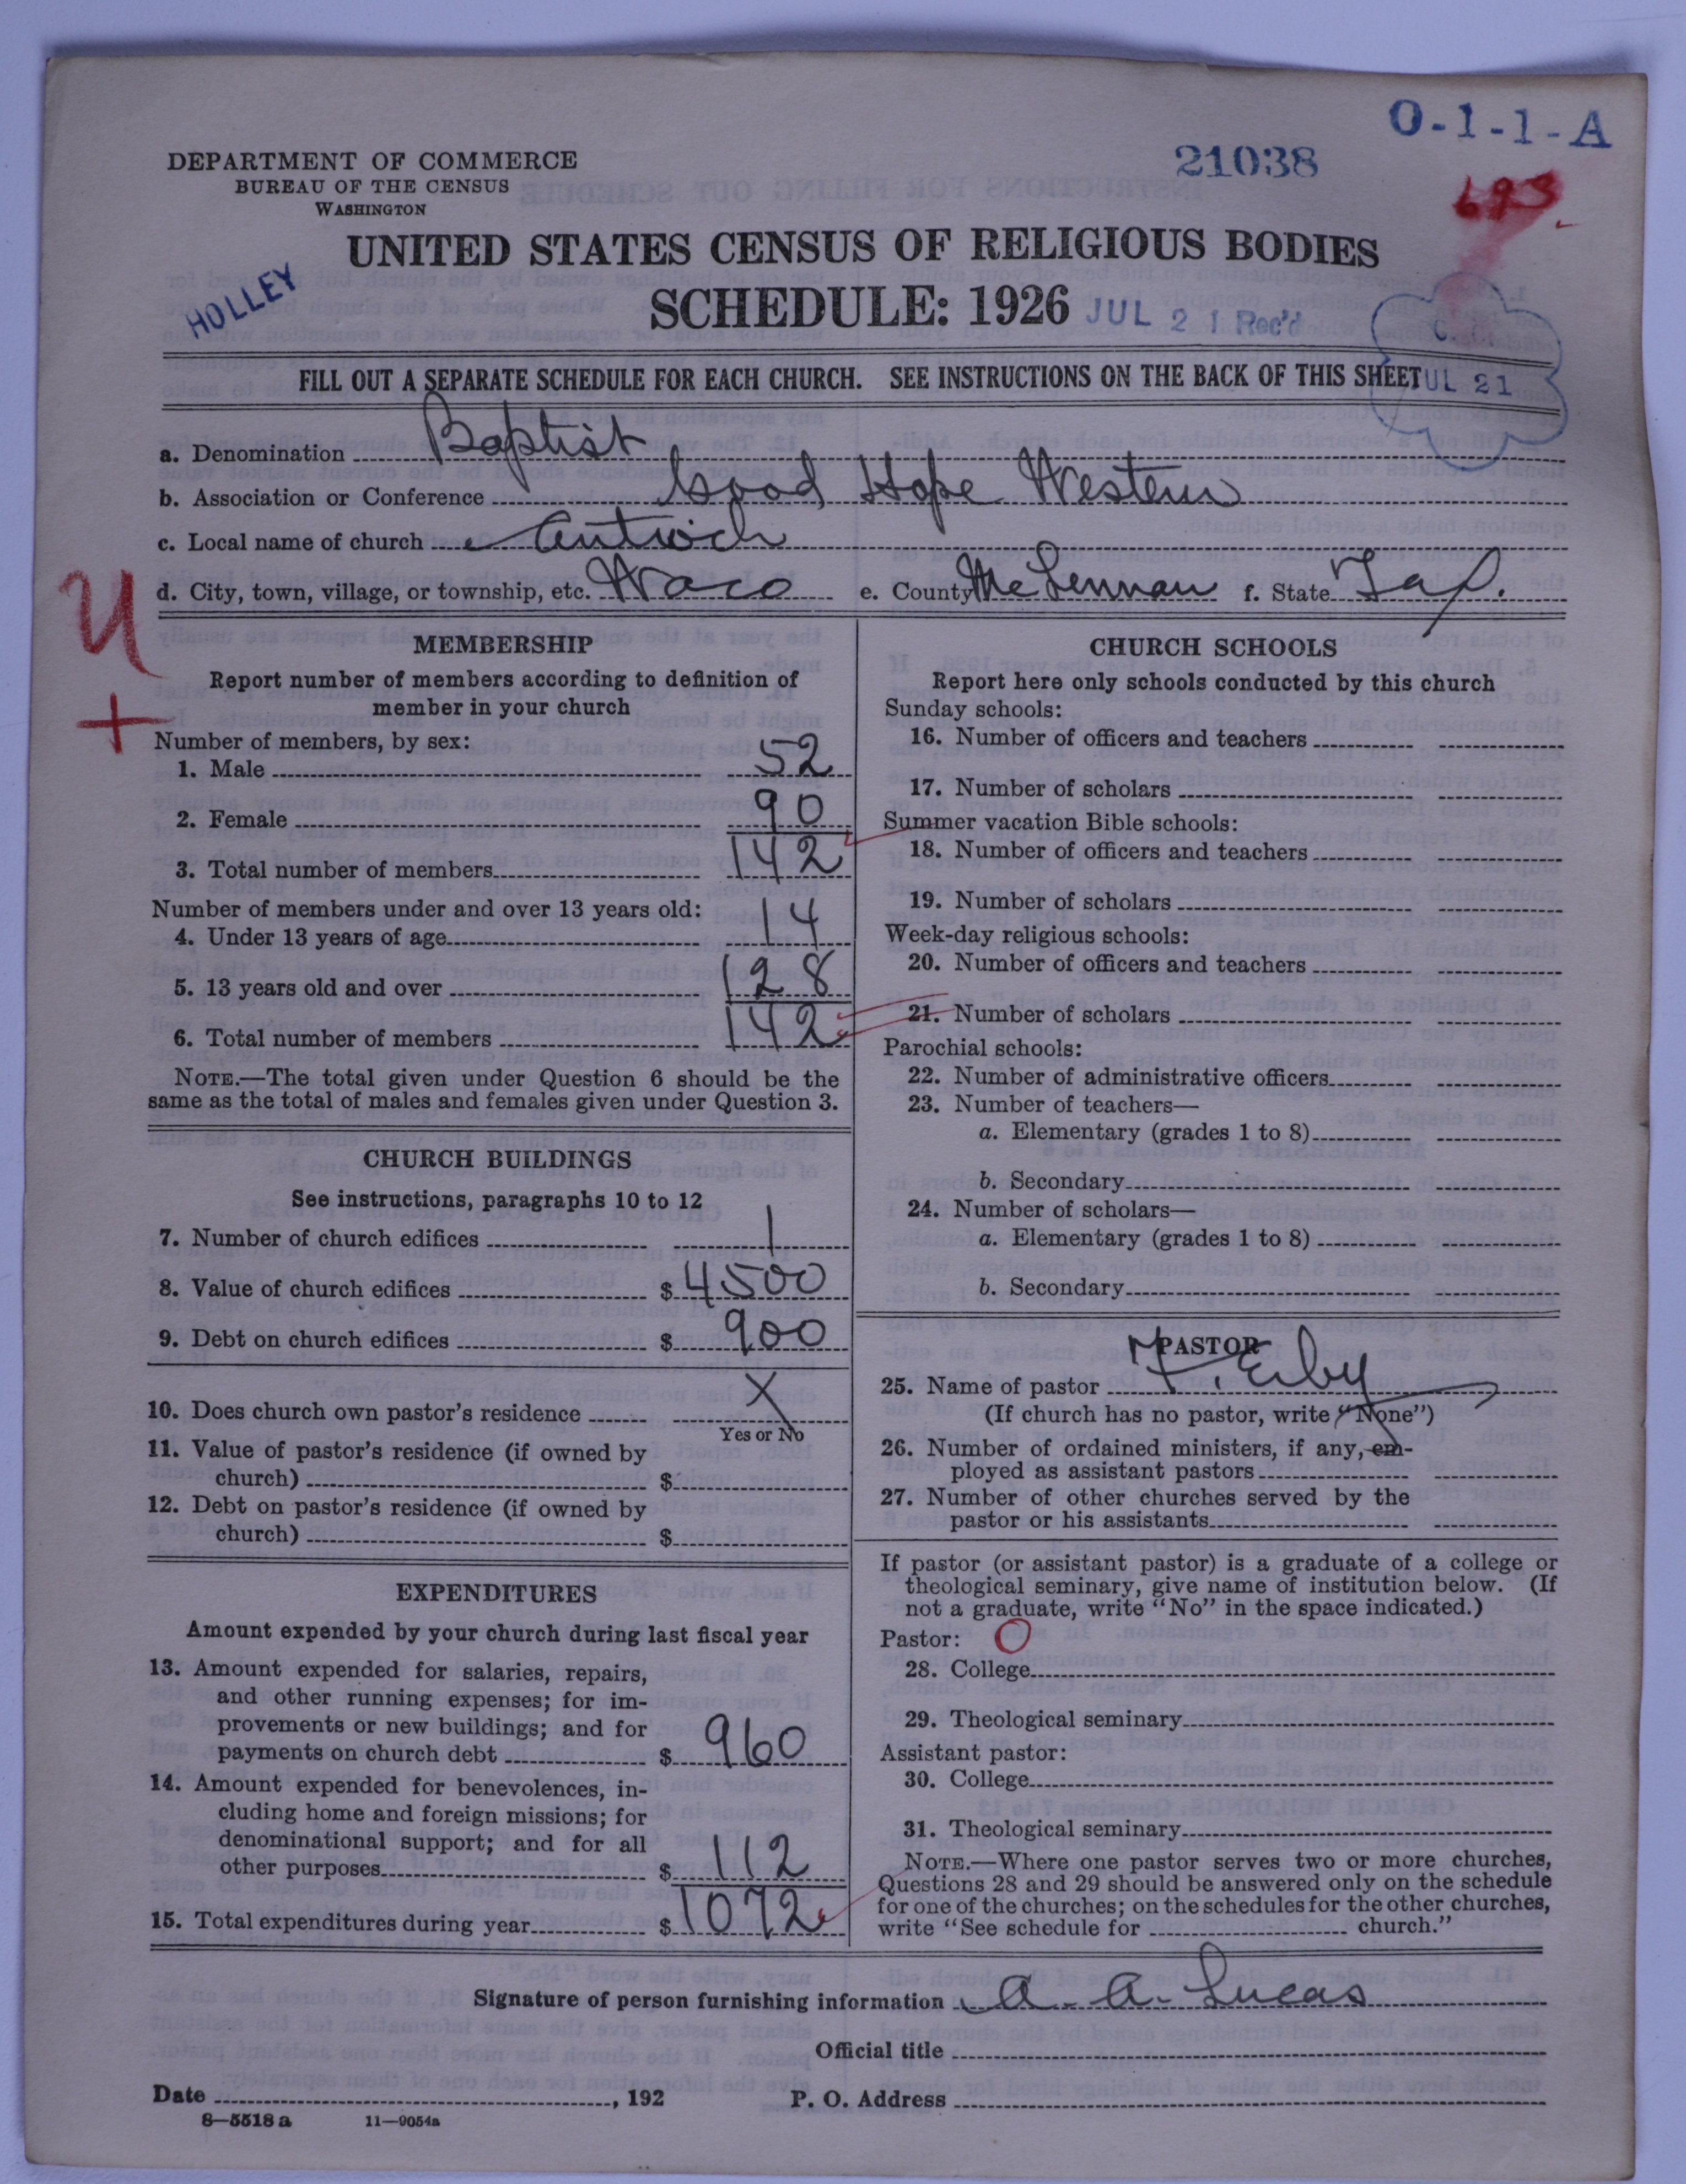 O-1-1-A
21038
693
DEPARTMENT OF COMMERCE
BUREAU OF THE CENSUS
WASHINGTON
UNITED STATES CENSUS OF RELIGIOUS BODIES
HOLLEY
SCHEDULE: 1926 JUL 21 Rec'd
C. C.
FILL OUT A SEPARATE SCHEDULE FOR EACH CHURCH. SEE INSTRUCTIONS ON THE BACK OF THIS SHEET
JUL 21
a. Denomination Baptist
b. Association or Conference Good Hope Western
c. Local name of church Antioch
d. City, town, village, or township, etc. Waco e. County McLennan f. State Tex.
U
+
MEMBERSHIP
Report number of members according to definition of
member in your church
Number of members, by sex:
1. Male 52
2. Female 90
3. Total number of members 142
Number of members under and over 13 years old:
4. Under 13 years of age 14
5. 13 years old and over 128
6. Total number of members 142
NOTE.—The total given under Question 6 should be the
same as the total of males and females given under Question 3.
CHURCH BUILDINGS
See instructions, paragraphs 10 to 12
7. Number of church edifices 1
8. Value of church edifices $ 4500
9. Debt on church edifices $ 900
10. Does church own pastor's residence X
Yes or No
11. Value of pastor's residence (if owned by
church) $
12. Debt on pastor's residence (if owned by
church) $
EXPENDITURES
Amount expended by your church during last fiscal year
13. Amount expended for salaries, repairs,
and other running expenses; for im-
provements or new buildings; and for
payments on church debt $ 960
14. Amount expended for benevolences, in-
cluding home and foreign missions; for
denominational support; and for all
other purposes $ 112
15. Total expenditures during year $ 1072
CHURCH SCHOOLS
Report here only schools conducted by this church
Sunday schools:
16. Number of officers and teachers
17. Number of scholars
Summer vacation Bible schools:
18. Number of officers and teachers
19. Number of scholars
Week-day religious schools:
20. Number of officers and teachers
21. Number of scholars
Parochial schools:
22. Number of administrative officers
23. Number of teachers—
a. Elementary (grades 1 to 8)
b. Secondary
24. Number of scholars—
a. Elementary (grades 1 to 8)
b. Secondary
PASTOR
25. Name of pastor
(If church has no pastor, write "None")
26. Number of ordained ministers, if any, em-
ployed as assistant pastors
27. Number of other churches served by the
pastor or his assistants
If pastor (or assistant pastor) is a graduate of a college or
theological seminary, give name of institution below. (If
not a graduate, write "No" in the space indicated.)
Pastor: O
28. College
29. Theological seminary
Assistant pastor:
30. College
31. Theological seminary
NOTE.—Where one pastor serves two or more churches,
Questions 28 and 29 should be answered only on the schedule
for one of the churches; on the schedules for the other churches,
write "See schedule for church."
Signature of person furnishing information A. A. Lucas
Official title
Date , 192 P. O. Address
8—5518 a 11—9054a